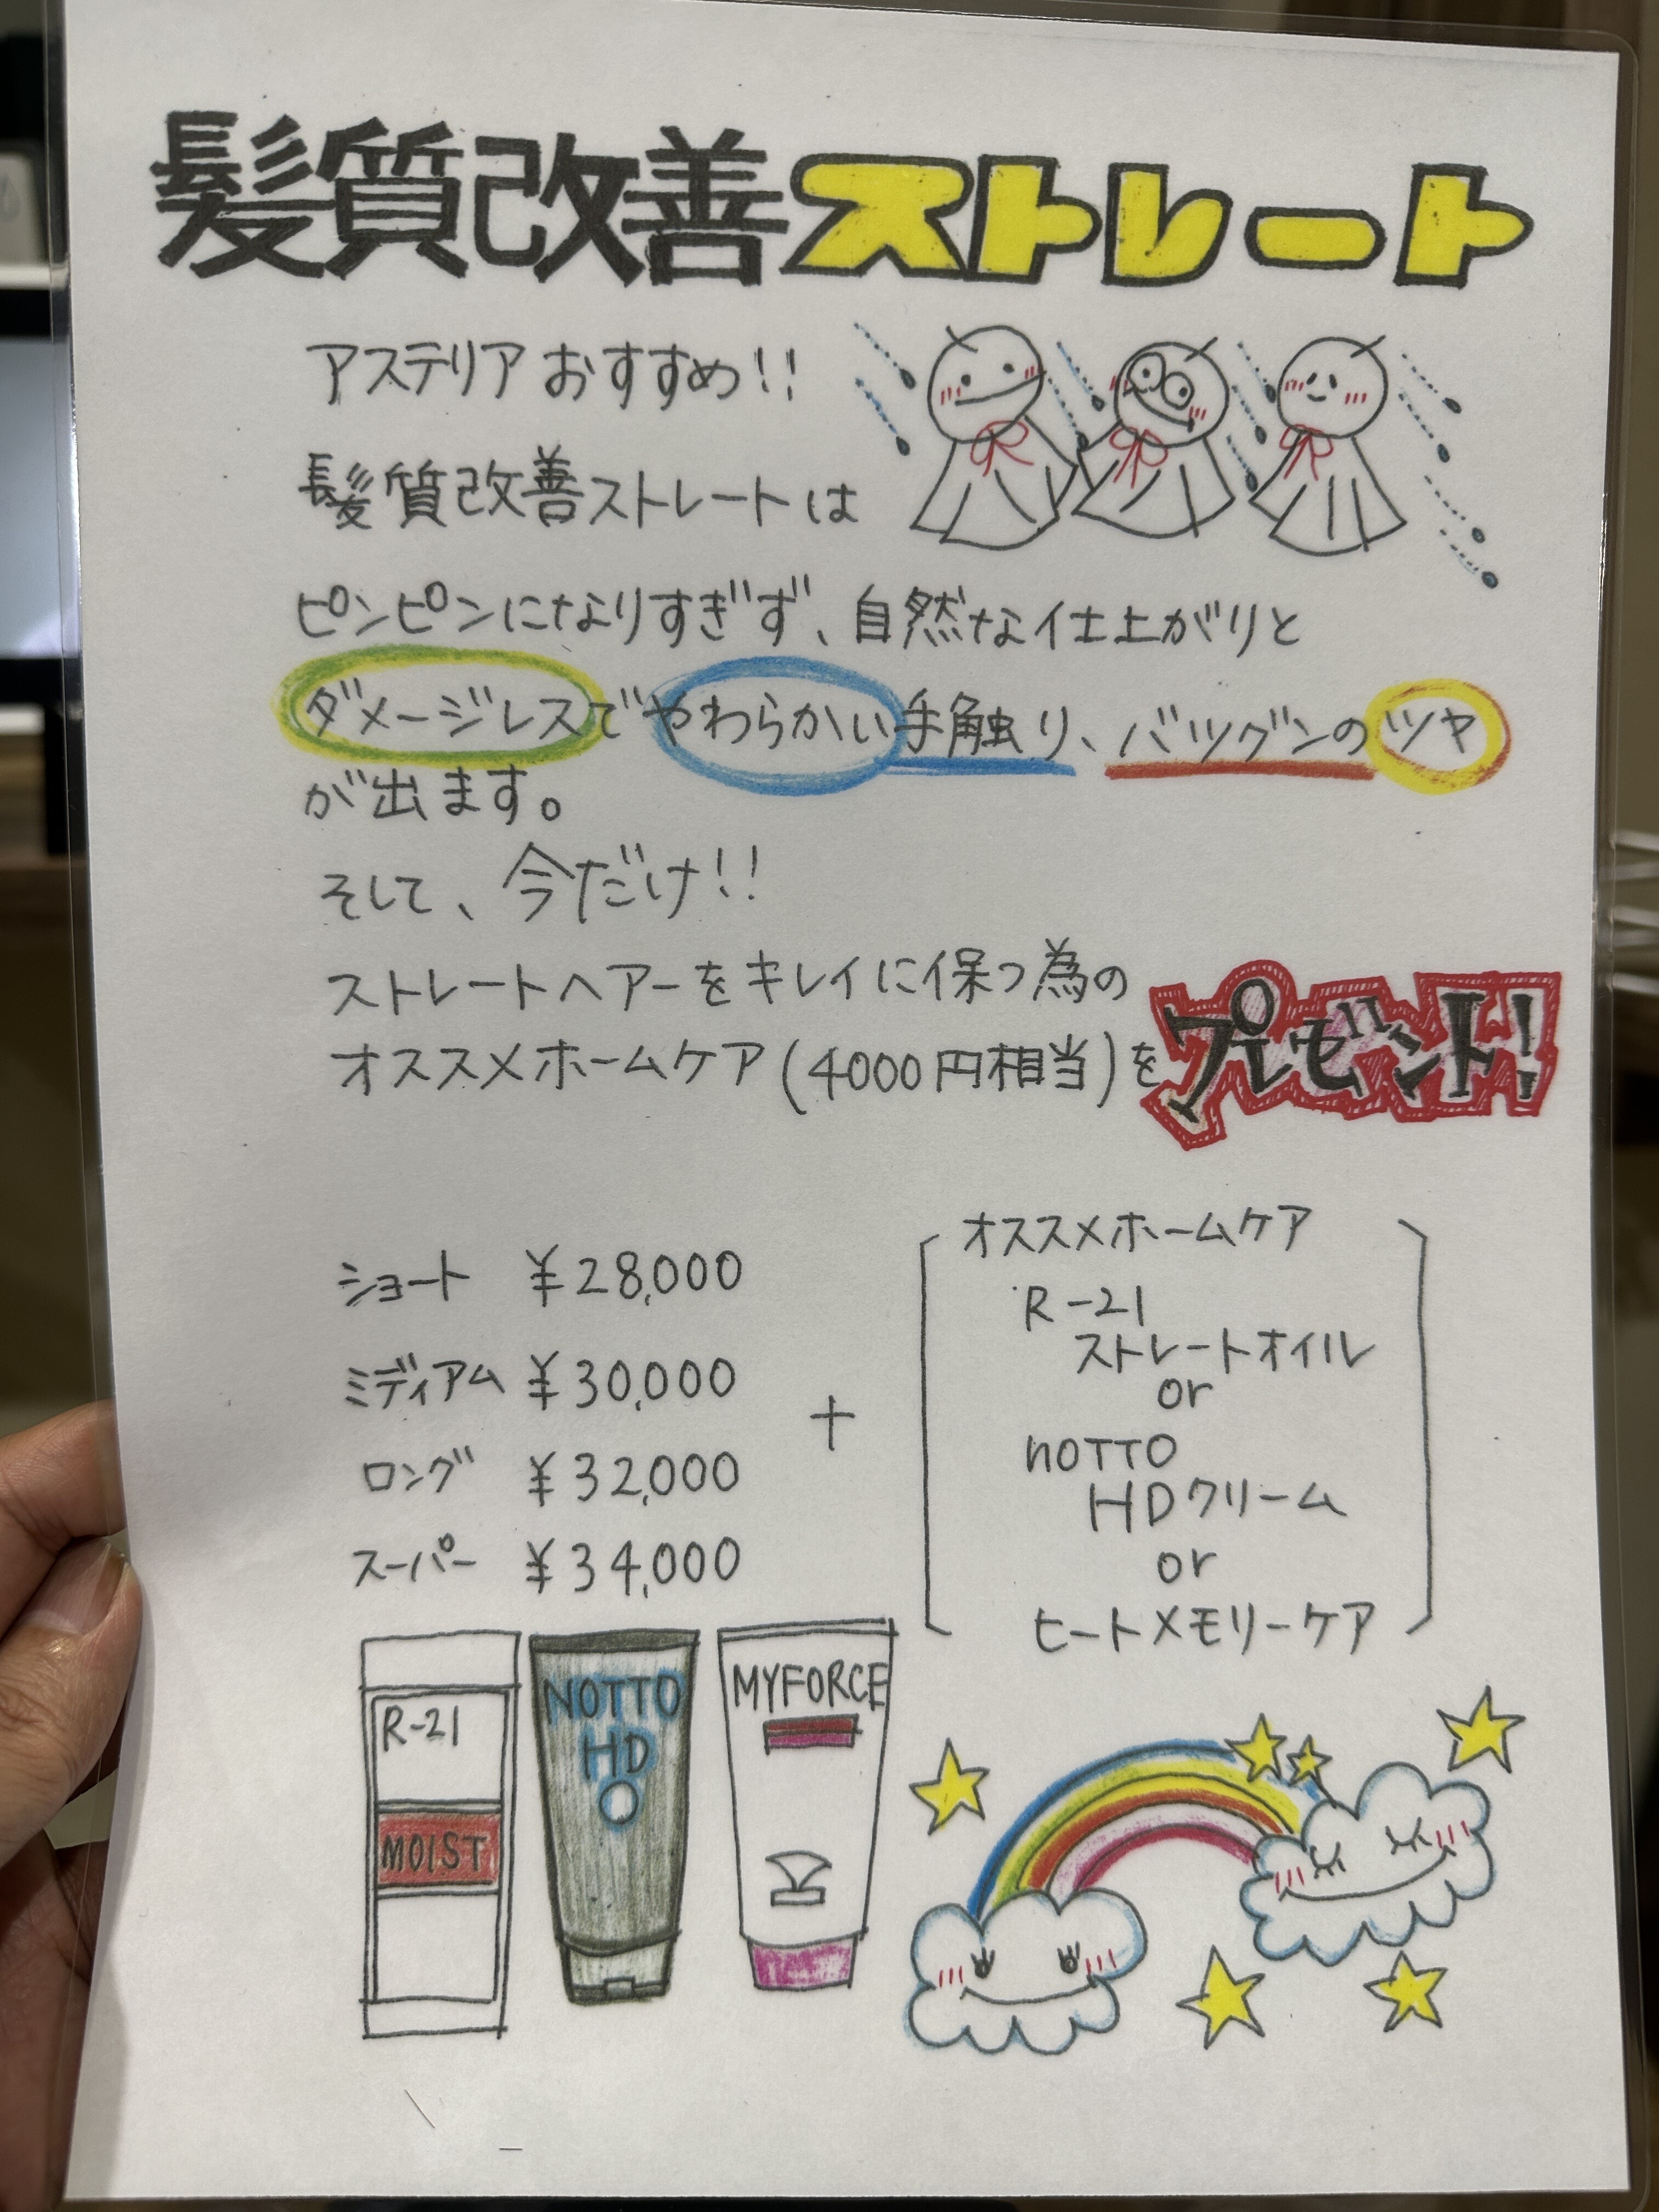 髪質改善ストレート
アステリアおすすめ!!
髪質改善ストレートは
ピンピンになりすぎず、自然な仕上がりと
ダメージレスでやわらかい手触り、バツグンのツヤ
が出ます。
そして、今だけ!!
ストレートヘアーをキレイに保つ為の
オススメホームケア(4000円相当)をプレゼント!
ショート ¥28,000
ミディアム ¥30,000
ロング ¥32,000
スーパー ¥34,000
+
オススメホームケア
R-21
ストレートオイル
or
nOTTO
HDクリーム
or
ヒートメモリーケア
R-21
MOIST
NOTTO
HD
MYFORCE